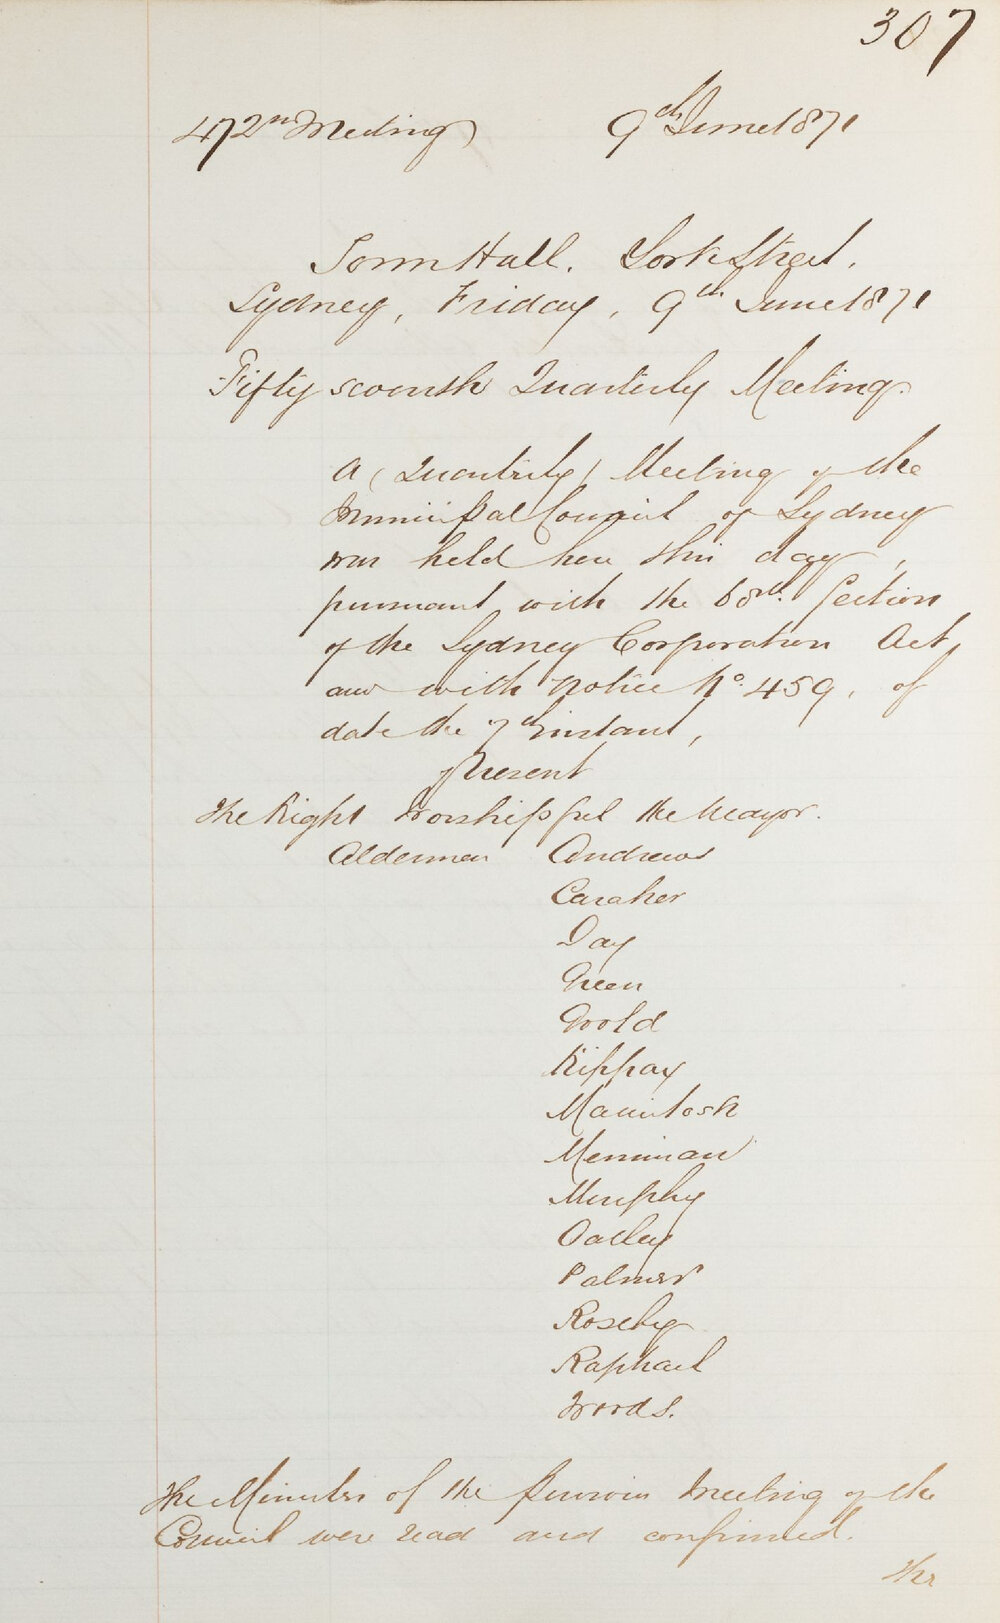 307
472nd Meeting 9th June 1871
Town Hall, York Street,
Sydney, Friday, 9th June 1871
Fifty seventh Quarterly Meeting.
A (Quarterly) Meeting of the
Municipal Council of Sydney
was held here this day,
pursuant with the 68th Section
of the Sydney Corporation Act,
and with Notice No. 459, of
date the 7th instant,
Present
The Right Worshipful the Mayor.
Aldermen Andrews
Caraher
Day
Green
Goold
Kippax
Macintosh
Merriman
Murphy
Oatley
Palmer
Roseby
Raphael
Woods.
The Minutes of the previous Meeting of the
Council were read and confirmed.
The